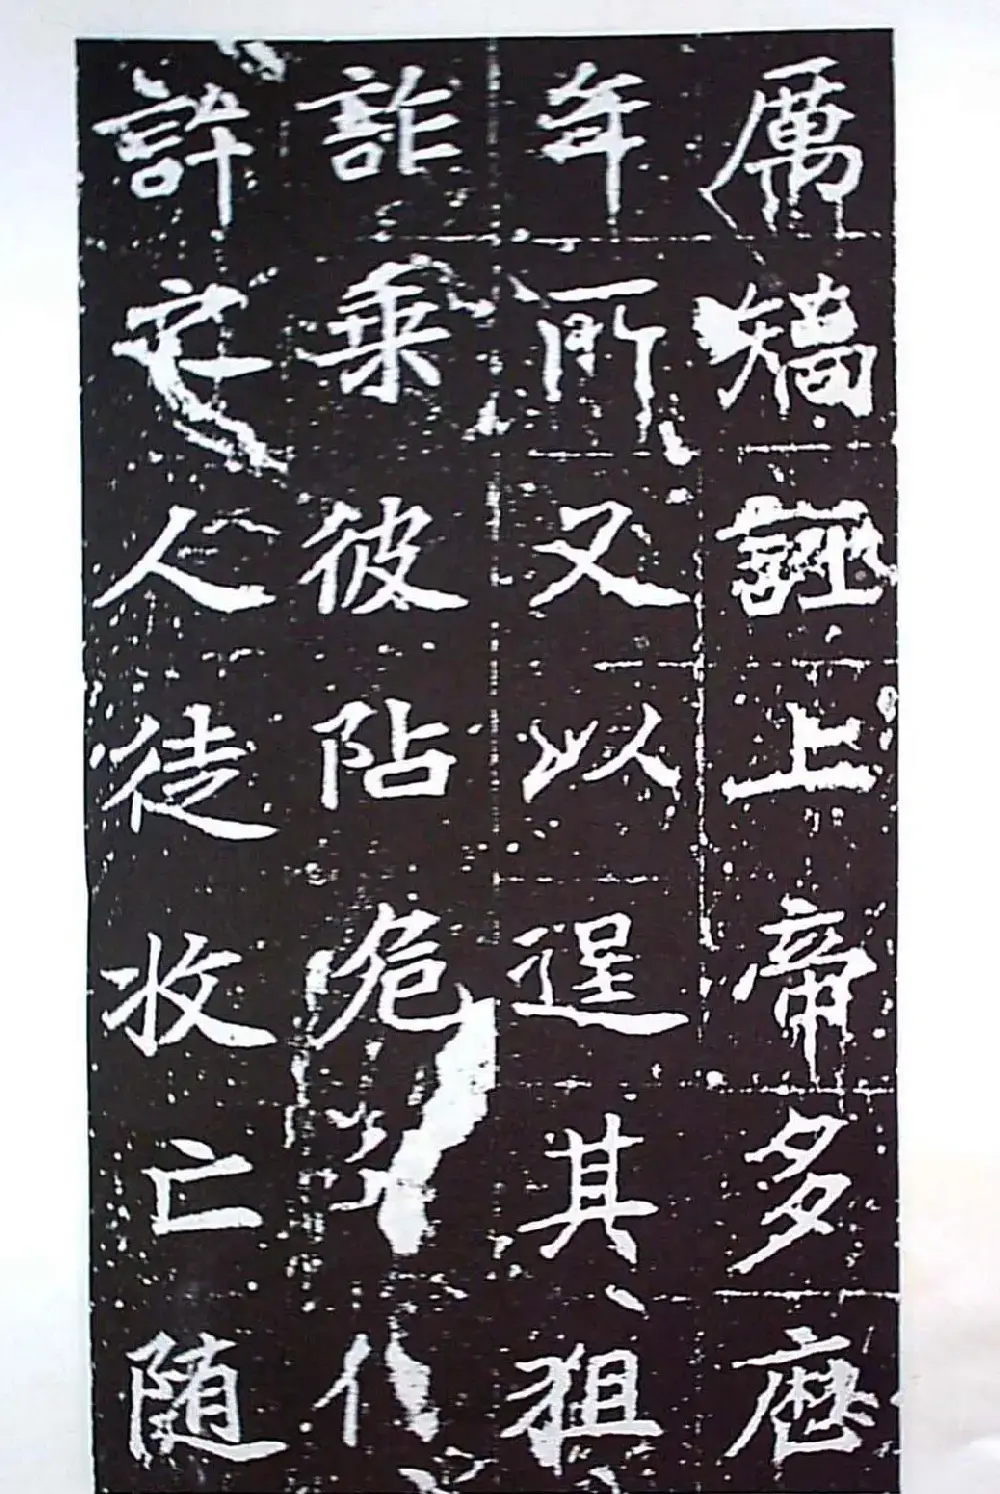 厲矯誣上帝多歷
年所又以逞其狙
詐乘彼阽危
許人徒收亡隨